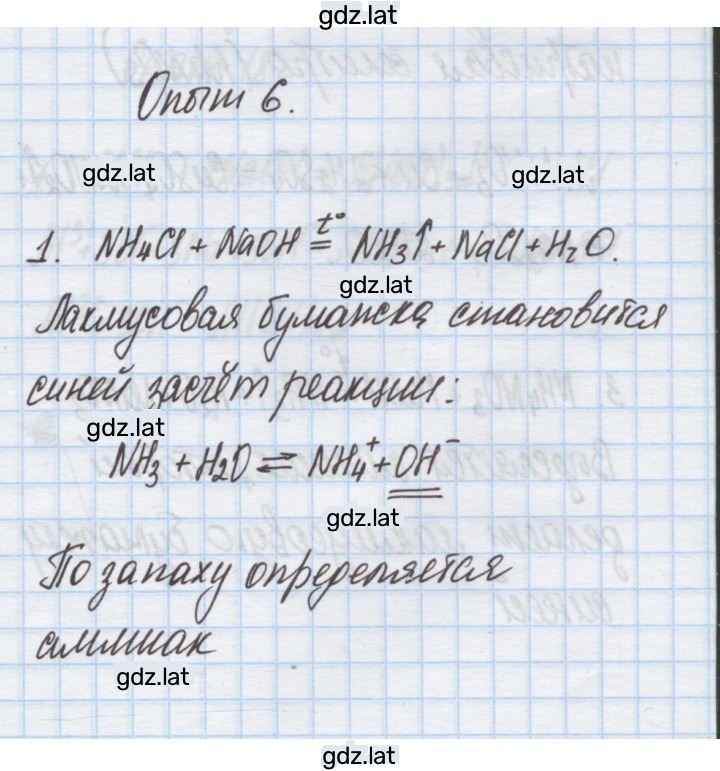 gdz.lat
Опыт 6.
gdz.lat
gdz.lat
1. NH₄Cl + NaOH t°= NH₃↑ + NaCl + H₂O.
gdz.lat
Лакмусовая бумажка становится
синей засчёт реакции:
gdz.lat
NH₃ + H₂O ⇄ NH₄⁺ + OH⁻
gdz.lat
По запаху определяется
аммиак
gdz.lat
gdz.lat